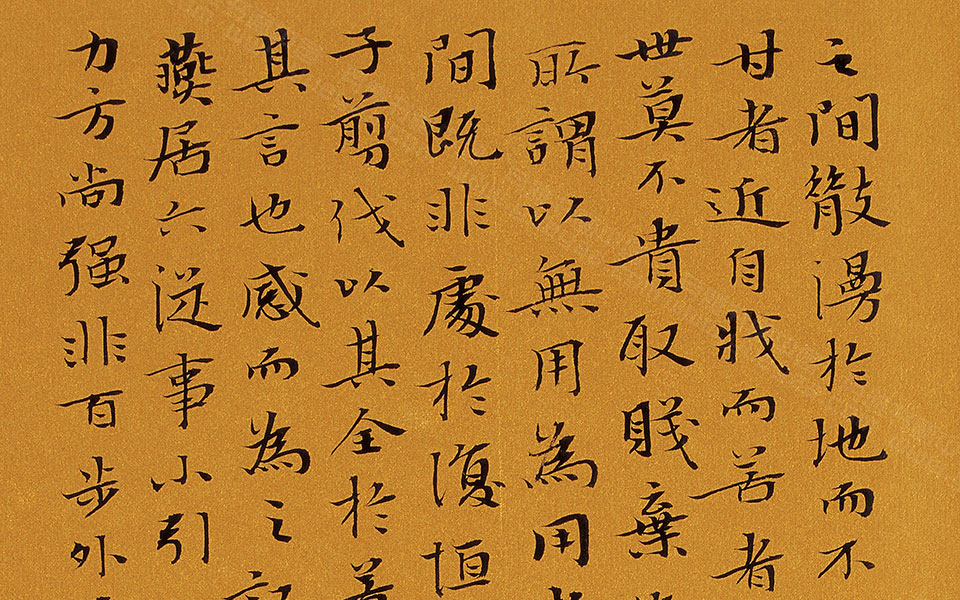 之間散漫於地而不
甘者近自戕而苦者
世莫不貴取賤棄
所謂以無用為用
間既非處於復恒
子剪伐以其全於
其言也感而為之記
燕居六從事小引
力方尚强非百步外